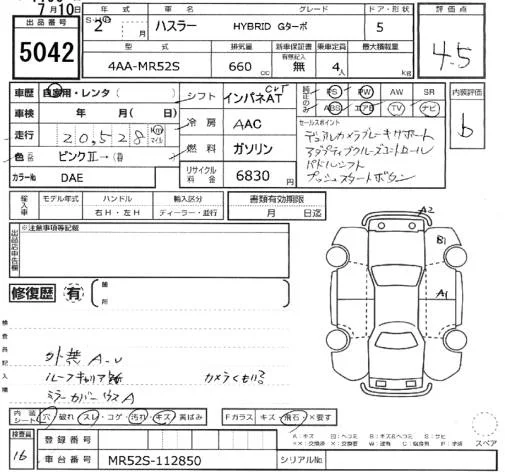 7月10日
出品番号 5042
年式 車名 グレード ドア・形状 評価点
2 月 ハスラー HYBRID Gターボ 5 4.5
型式 排気量 新車保証書 乗車定員 最大積載量
有無記入
4AA-MR52S 660 cc 無 4人 kg
車歴 自家用・レンタ( ) シフト インパネAT CVT 純正のみ PS PW AW SR 内装評価
ABS エアB TV ナビ b
車検 年 月( 日) 冷房 AAC セールスポイント
走行 20,528 Km マイル デュアルカメラブレーキサポート
アダプティブクルーズコントロール
色 ピンクⅡ→( 燃料 ガソリン パドルシフト
プッシュスタートボタン
カラーNo DAE リサイクル料金 6830円
輸入車 モデル年式 ハンドル 輸入区分 書類有効期限
右H・左H ディーラー・並行 月 日迄
出品店申告欄 ※注意事項等記載
A2
B1
A1
修復歴 有 箇所
検査員記入欄
外装 A-U
ルーフキャリア跡 カメラくもり
ミラーカバー キズA
内装シート 穴 破れ スレ・コゲ・汚れ・キズ 黄ばみ Fガラス キズ・飛石・×要す
A:キズ U:ヘコミ B:キズ&ヘコミ S:サビ
××:交換済 ×:要交換 W:波有 C:腐食有 P:要塗
スペア
検査員 16 登録番号
車台番号 MR52S-112850 シリアルNo.